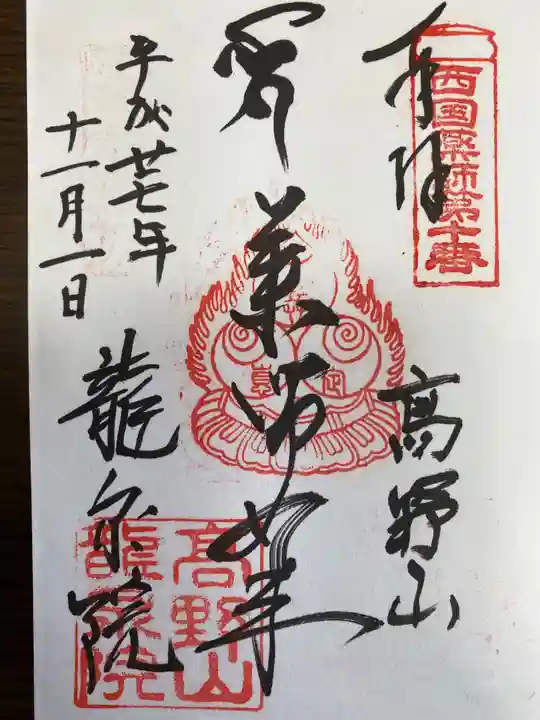 西国薬師第十番
奉拝
高野山
薬師如来
平成廿七年
十一月一日
龍泉院
高野山
龍泉院